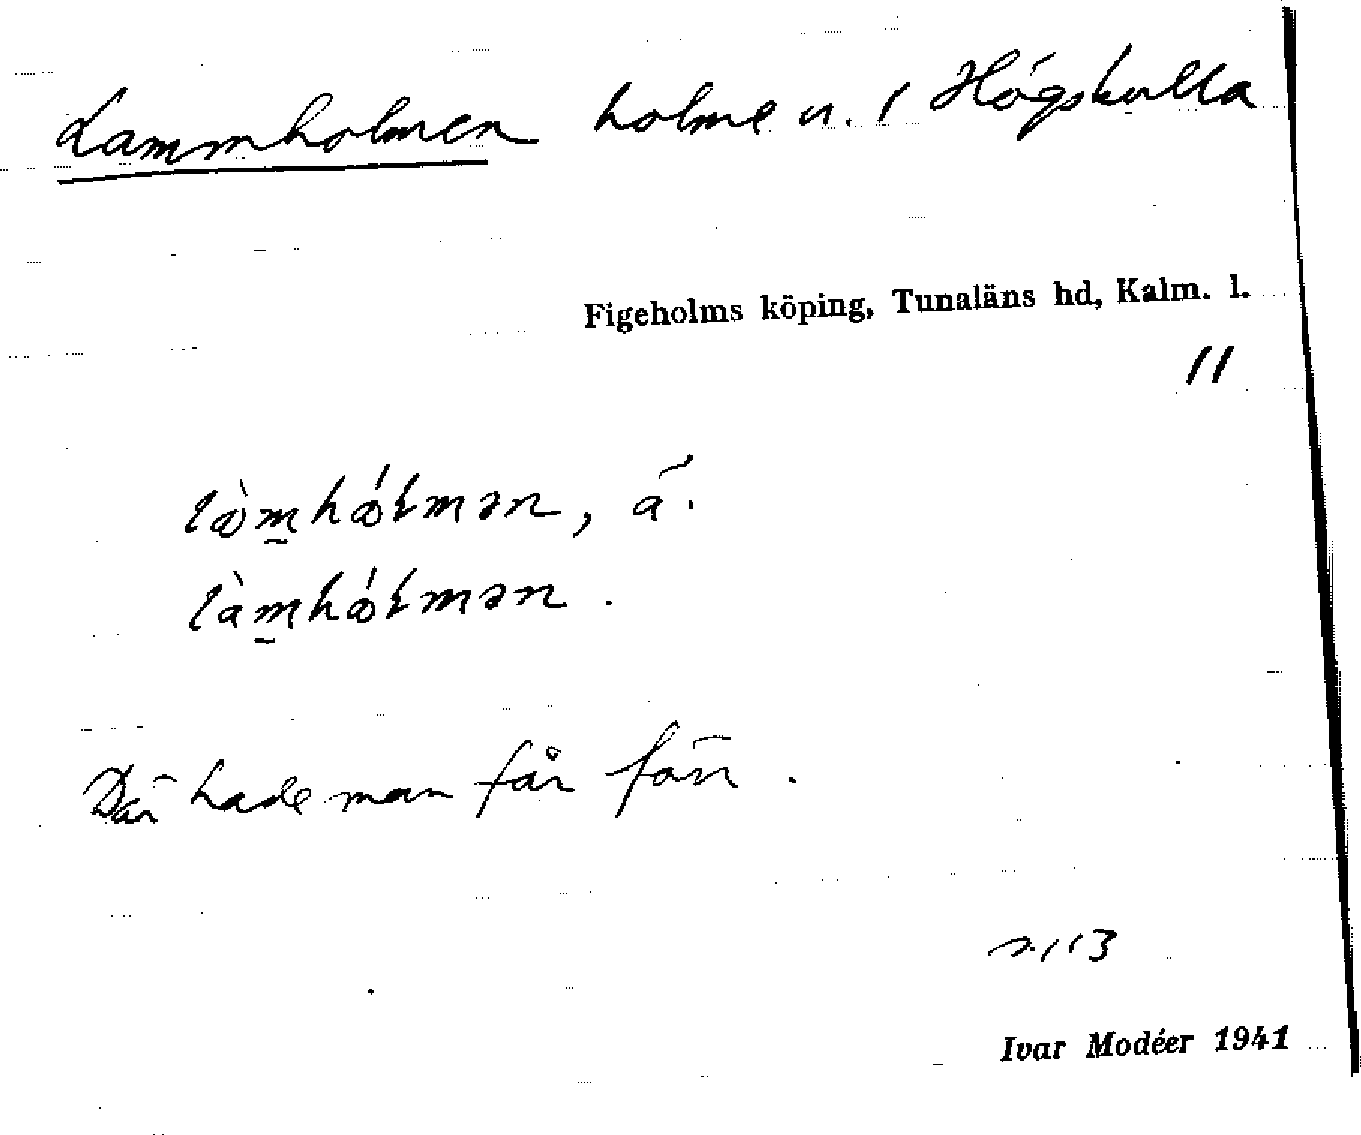 Lammholmen holme n. 1 Högskulla
Figeholms köping, Tunaläns hd, Kalm. l.
11
man, ä.
man.
Där hade man får förr.
113
Ivar Modéer 1941